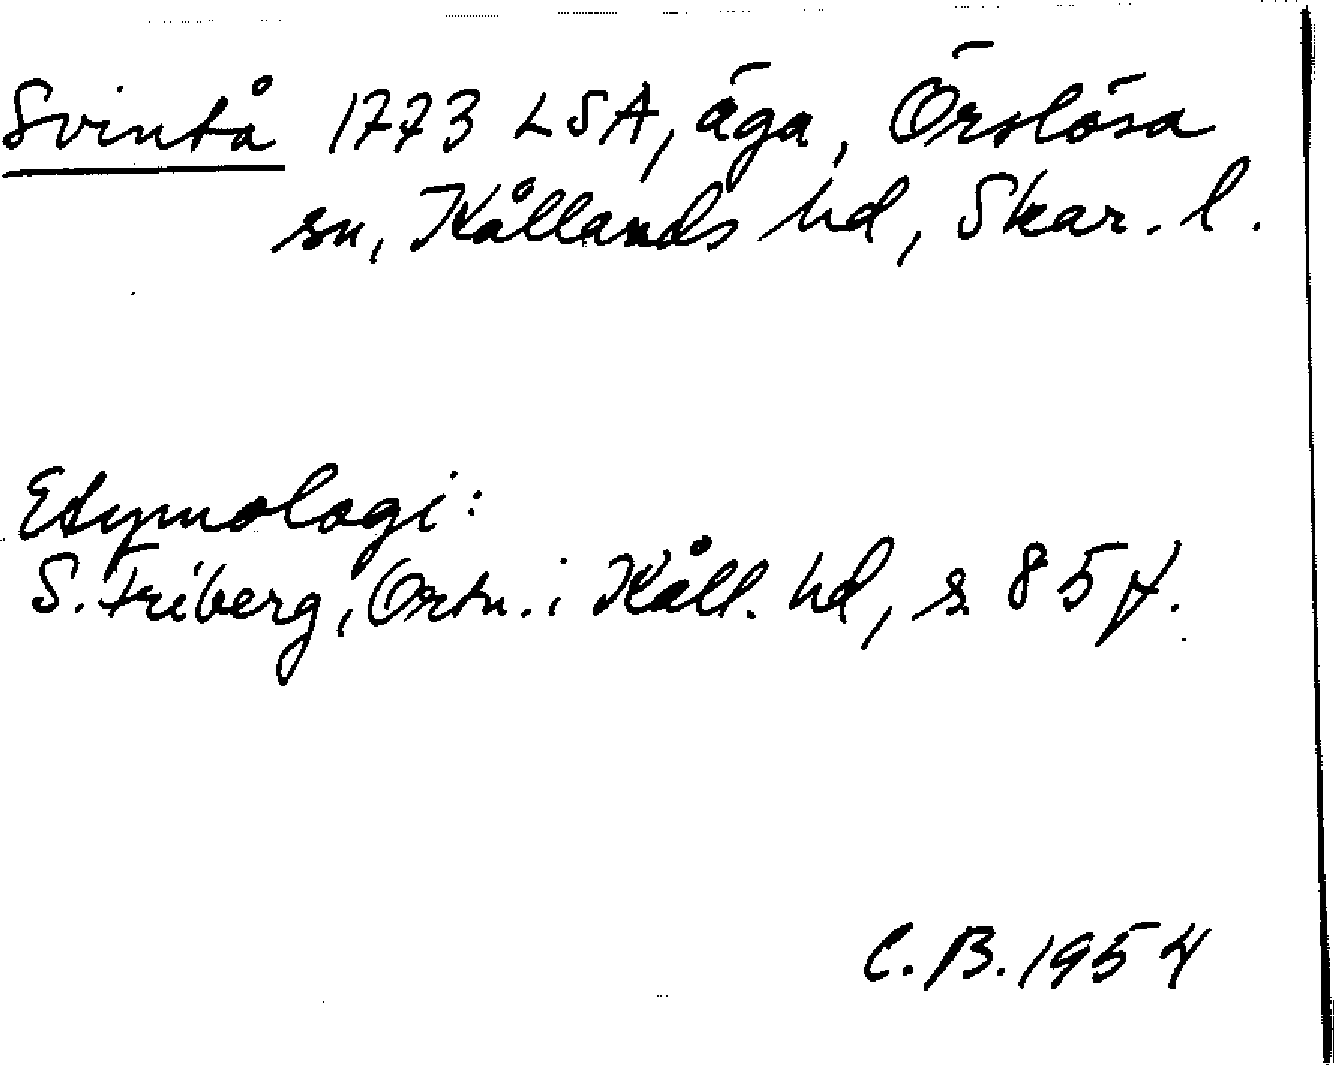 Svintå 1773 LSA, äga, Örslösa
sn, Kållands hd, Skar. l.
Etymologi:
S. Friberg, Ortn. i Kåll. hd, s 85 f.
C. B. 1954